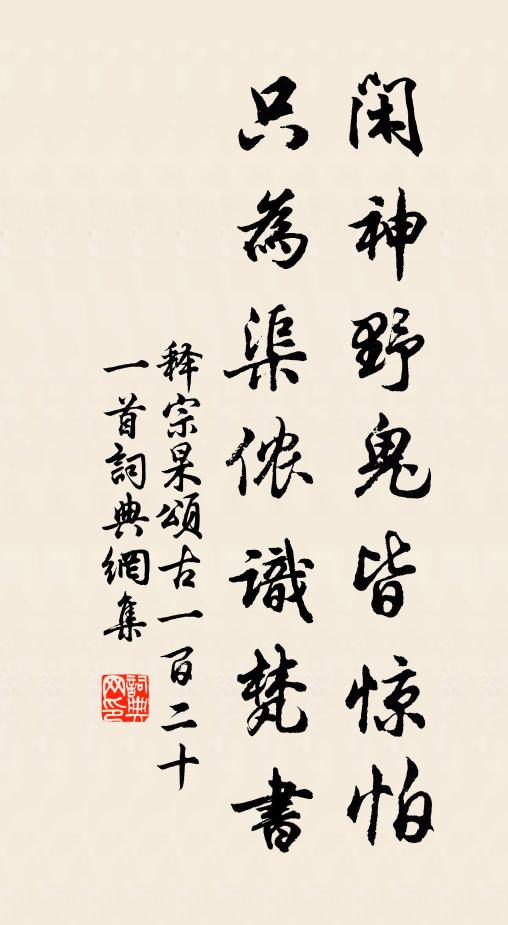 閑神野鬼皆惊怕
只為渠侬識梵書
释宗杲頌古一百二十
一首詞典網集
詞典網印